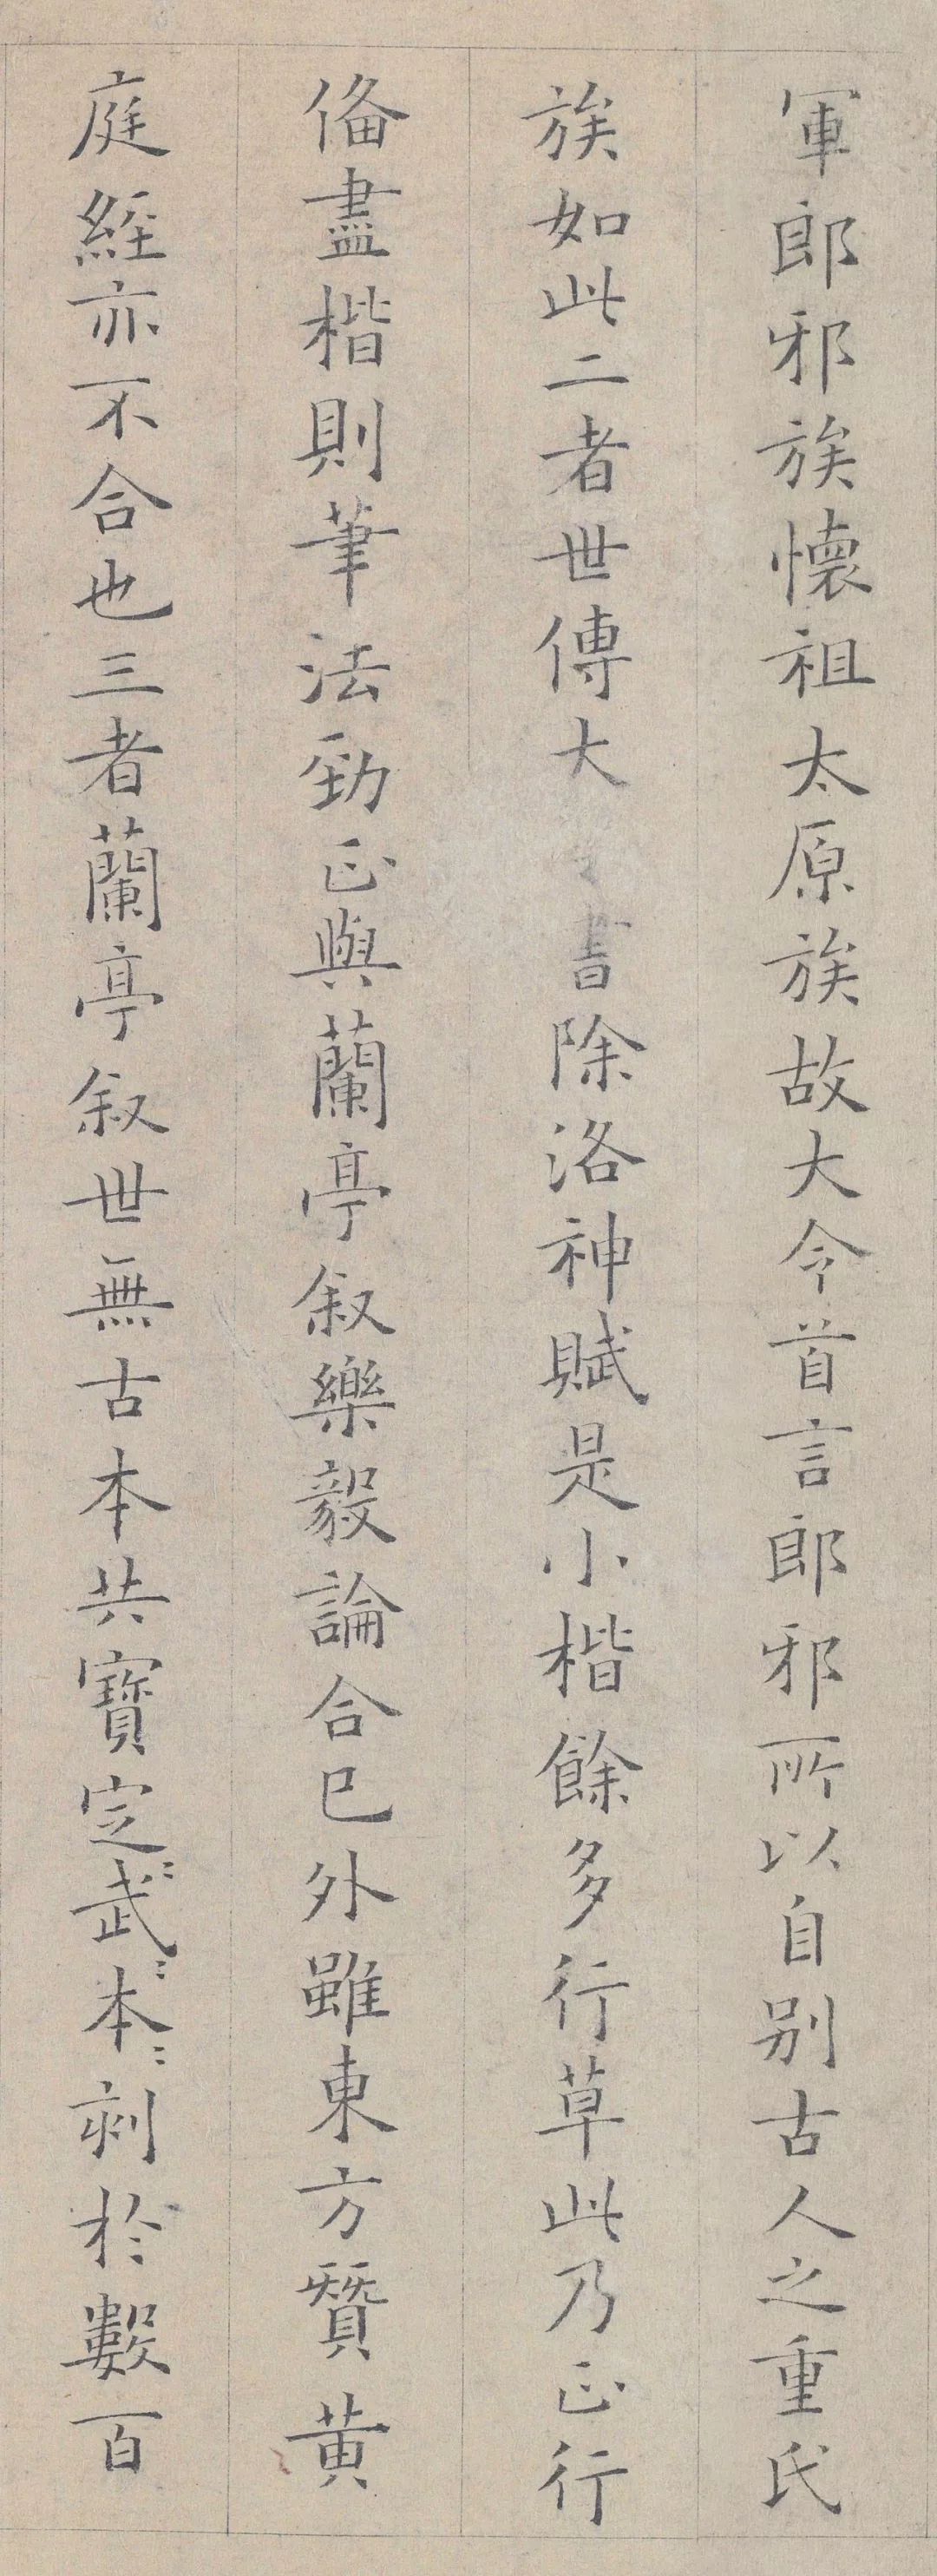 軍郎邪族懷祖太原族故大令首言郎邪所以自別古人之重氏
族如此二者世傳大書除洛神賦是小楷餘多行草此乃正行
俻盡楷則筆法勁正與蘭亭叙樂毅論合已外雖東方賛黃
庭經亦不合也三者蘭亭叙世無古本共寶定武〻本〻刻於數百